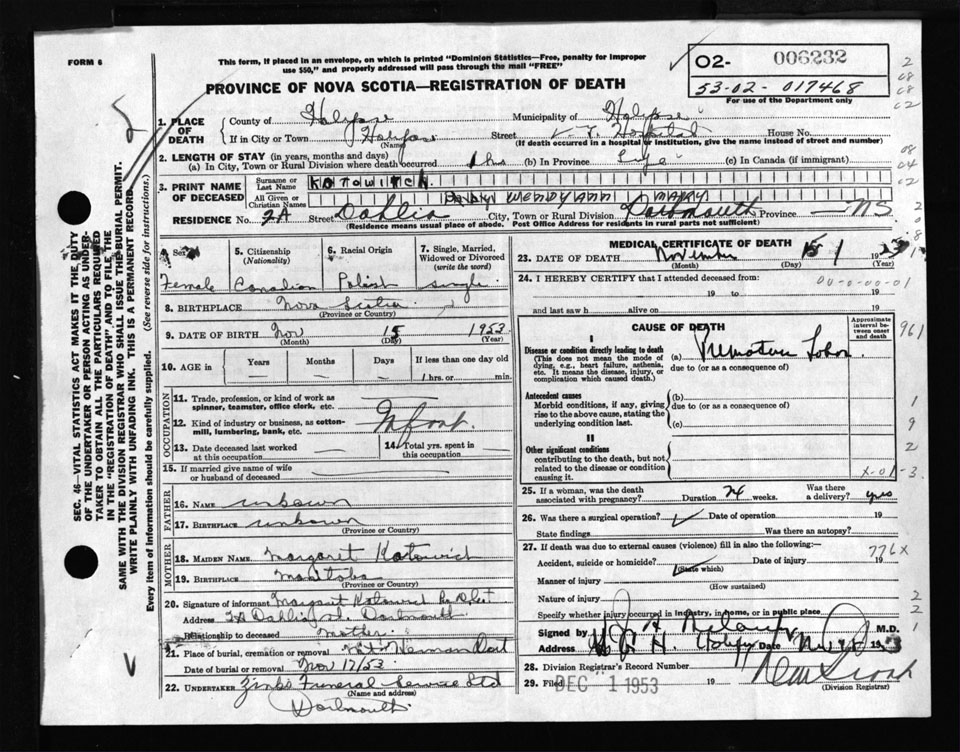 FORM 6
This form, if placed in an envelope, on which is printed "Dominion Statistics—Free, penalty for improper
use $50," and properly addressed will pass through the mail "FREE"
PROVINCE OF NOVA SCOTIA—REGISTRATION OF DEATH
O2- 006232
53-02-017468
For use of the Department only
SEC. 46—VITAL STATISTICS ACT MAKES IT THE DUTY
OF THE UNDERTAKER OR PERSON ACTING AS UNDER-
TAKER TO OBTAIN ALL THE PARTICULARS REQUIRED
IN THE "REGISTRATION OF DEATH", AND TO FILE THE
SAME WITH THE DIVISION REGISTRAR WHO SHALL ISSUE THE BURIAL PERMIT.
WRITE PLAINLY WITH UNFADING INK. THIS IS A PERMANENT RECORD
Every item of information should be carefully supplied. (See reverse side for instructions.)
1. PLACE OF DEATH
County of Halifax Municipality of Halifax
If in City or Town Halifax Street Hospital House No.
(Name) (If death occurred in a hospital or institution, give the name instead of street and number)
2. LENGTH OF STAY (in years, months and days)
(a) In City, Town or Rural Division where death occurred 1 hrs (b) In Province Life (c) In Canada (if immigrant)
3. PRINT NAME OF DECEASED
Surname or Last Name KATOWITCH
All Given or Christian Names BABY WENDY ANN MARY
RESIDENCE No. 2A Street Dahlia City, Town or Rural Division Dartmouth Province NS.
(Residence means usual place of abode. Post Office Address for residents in rural parts not sufficient)
4. Sex 5. Citizenship (Nationality) 6. Racial Origin 7. Single, Married, Widowed or Divorced (write the word)
Female Canadian Polish single
8. BIRTHPLACE Nova Scotia
(Province or Country)
9. DATE OF BIRTH Nov 15 1953
(Month) (Day) (Year)
10. AGE in Years Months Days If less than one day old
1 hrs. or min.
OCCUPATION
11. Trade, profession, or kind of work as
spinner, teamster, office clerk, etc.
12. Kind of industry or business, as cotton-
mill, lumbering, bank, etc. Infant
13. Date deceased last worked at this occupation 14. Total yrs. spent in this occupation
15. If married give name of wife
or husband of deceased
FATHER
16. NAME unknown
17. BIRTHPLACE unknown
(Province or Country)
MOTHER
18. MAIDEN NAME Margaret Katowich
19. BIRTHPLACE Manitoba
(Province or Country)
20. Signature of informant Margaret Katowich
Address 2A Dahlia St. Dartmouth
Relationship to deceased Mother
21. Place of burial, cremation or removal Mt. Herman Dart
Date of burial or removal Nov 17/53
22. UNDERTAKER Zinks Funeral Service Ltd
(Name and address)
Dartmouth
MEDICAL CERTIFICATE OF DEATH
23. DATE OF DEATH November 15 19 53
(Month) (Day) (Year)
24. I HEREBY CERTIFY that I attended deceased from:
19 to 19
and last saw h alive on 19
CAUSE OF DEATH
Approximate interval between onset and death
I
Disease or condition directly leading to death
(This does not mean the mode of
dying, e.g., heart failure, asthenia,
etc. It means the disease, injury, or
complication which caused death.)
(a) Premature Labor
due to (or as a consequence of)
Antecedent causes
Morbid conditions, if any, giving
rise to the above cause, stating the
underlying condition last.
(b)
due to (or as a consequence of)
(c)
II
Other significant conditions
contributing to the death, but not
related to the disease or condition
causing it.
25. If a woman, was the death
associated with pregnancy? Duration 24 weeks. Was there a delivery? yes
26. Was there a surgical operation? Date of operation 19
State findings Was there an autopsy?
27. If death was due to external causes (violence) fill in also the following:—
Accident, suicide or homicide? Date of injury 19
(State which) 776X
Manner of injury
(How sustained)
Nature of injury
Specify whether injury occurred in industry, in home, or in public place
Signed by M.D.
Address Date Nov 19 53
28. Division Registrar's Record Number
29. Filed DEC 1 1953 19
(Division Registrar)